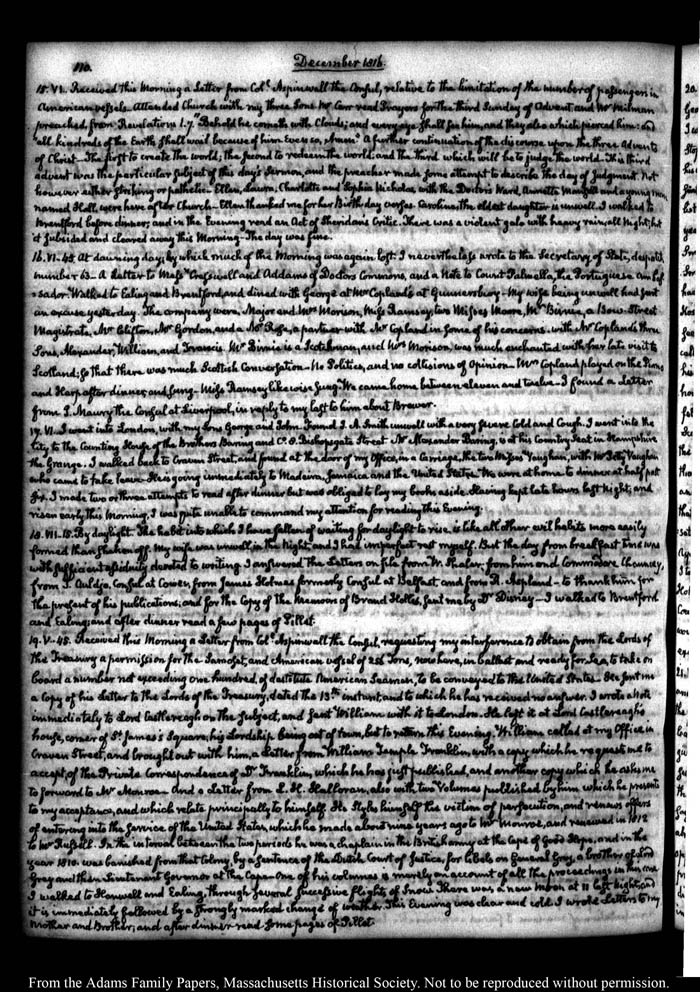 110.
December 1816.
15. VI. Received this Morning a Letter from Coll. Aspinwall the Consul, relative to the limitation of the number of passengers in
American vessels. Attended Church with my three Sons. Mr Carr read Prayers for the third Sunday of Advent and Mr Milman
preached, from Revelations 1.7. "Behold he cometh with Clouds; and every eye Shall See him, and they also which pierced him: and
all kindreds of the Earth Shall wail because of him. Even so, Amen." A further continuation of the discourse upon the three Advents
of Christ—The first to create the world; the Second to redeem the world; and the third which will be to judge the world. This third
advent was the particular Subject of this day's Sermon, and the preacher made some attempt to describe the day of Judgment. Not
however either Striking or pathetic. Ellen, Laura, Charlotte and Sophia Nicholas, with the Doctor's Ward, and a young man
named Hall, were here after Church—Ellen thanked me for her Birth day verses. Caroline, the oldest daughter is unwell. I walked to
Brentford before dinner; and in the Evening read an Act of Sheridan's Critic. There was a violent gale with heavy rain, all Night; but
it Subsided and cleared away this Morning—The day was fine.
16. VI. 45. At dawning day; by which much of the Morning was again lost. I nevertheless wrote to the Secretary of State, despatch
number 63—A Letter to Messrs Creswell and Addams of Doctors Commons, and a Note to Count Palmella, the Portuguese Ambas-
sador. Walked to Ealing and Brentford, and dined with George at Mr Copland's at Gunnersbury—My wife being unwell had sent
an excuse yesterday. The company were, Major and Mrs Morison, Miss Ramsay, two Misses Moore, Mr Birnie, a Bow-Street
Magistrate, Mr Clifton, Mr Gordon, and a Mr Rose, a partner with Mr Copland in Some of his concerns. with Mr Copland's three
Sons, Alexander, William, and Francis. Mr Birnie is a Scotchman, and Mrs Morison, was much enchanted with her late visit to
Scotland; so that there was much Scottish Conversation—No Politics, and no collisions of Opinion—Mrs Copland played on the Piano
and Harp after dinner, and Sung—Miss Ramsay likewise Sung. We came home between eleven and twelve—I found a Letter
from J. Maury the Consul at Liverpool, in reply to my last to him about Brewer.
17. VI. I went into London, with my Sons George and John. Found J. A. Smith unwell with a very Severe Cold and Cough. I went into the
City to the Counting House of the Brothers Baring and Co. 8. Bishopsgate Street. Mr Alexander Baring, is at his Country Seat in Hampshire
the Grange. I walked back to Craven Street, and found at the door of my Office, in a Carriage, the two Misses Vaughan, with Mr Petty Vaughan
who came to take leave. He is going immediately to Madeira, Jamaica and the United States. We were at home to dinner at half past
I made two or three attempts to read after dinner but was obliged to lay my books aside. Having kept late hours last Night, and
risen early this Morning, I was quite unable to command my attention for reading this Evening.
18. VII. 15. By daylight. The habit into which I have fallen of waiting for daylight to rise is like all other evil habits more easily
formed than Shaken off. My wife was unwell in the Night, and I had imperfect rest myself. But the day from breakfast time was
with Sufficient assiduity devoted to writing. I answered the Letters on file from W. Shaler, from him and Commodore Chauncey,
from T. Auldjo, Consul at Cowes, from James Holmes formerly Consul at Belfast, and from — to thank him for
the present of his publications; and for the Copy of the Memoirs of Brand Hollis, Sent me by Dr Disney—I walked to Brentford
and Ealing; and after dinner read a few pages of Pillet.
19. V. 45. Received this Morning a Letter from Coll. Aspinwall the Consul, requesting my interference to obtain from the Lords of
the Treasury a permission for the and American vessel of Tons, now here, in ballast and ready for Sea, to take on
board a number not exceeding one hundred, of destitute American Seamen, to be conveyed to the United States. He Sent me
a Copy of his Letter to the Lords of the Treasury, dated the 13th instant, and to which he has received no answer. I wrote a Note
immediately to Lord Castlereagh on the Subject, and Sent William with it to London. He left it at Lord Castlereagh's
house, corner of St. James's Square, his Lordship being out of town, but to return this Evening. William called at my Office in
Craven Street, and brought out with him, a Letter from William Temple Franklin, with a copy which he requests me to
accept, of the Private Correspondence of Dr Franklin, which he has just published, and another copy which he asks me
to forward to Mr Monroe—And a Letter from L. H. Halloran, also with two Volumes published by him which he presents
to my acceptance, and which relate principally to himself. He Styles himself the victim of persecution, and renews offers
of entering into the Service of the United States, which he made about nine years ago to Mr Monroe, and renewed in 1812
to Mr Russell. In the interval between the two periods he was a chaplain in the British army at the Cape of Good Hope, and in the
year 1810. was banished from that Colony, by a Sentence of the Dutch Court of Justice, for libels on General Grey, a brother of Lord
Grey and then Lieutenant Governor at the Cape. One of his volumes is merely an account of all the proceedings in this case
I walked to Hanwell and Ealing, through Several Successive flights of Snow. There was a new Moon at 11 last Night, and
it is immediately followed by a Strongly marked change of weather. This Evening was clear and cold. I wrote Letters to my
Mother and Brother; and after dinner read Some pages of Pillet.
From the Adams Family Papers, Massachusetts Historical Society. Not to be reproduced without permission.